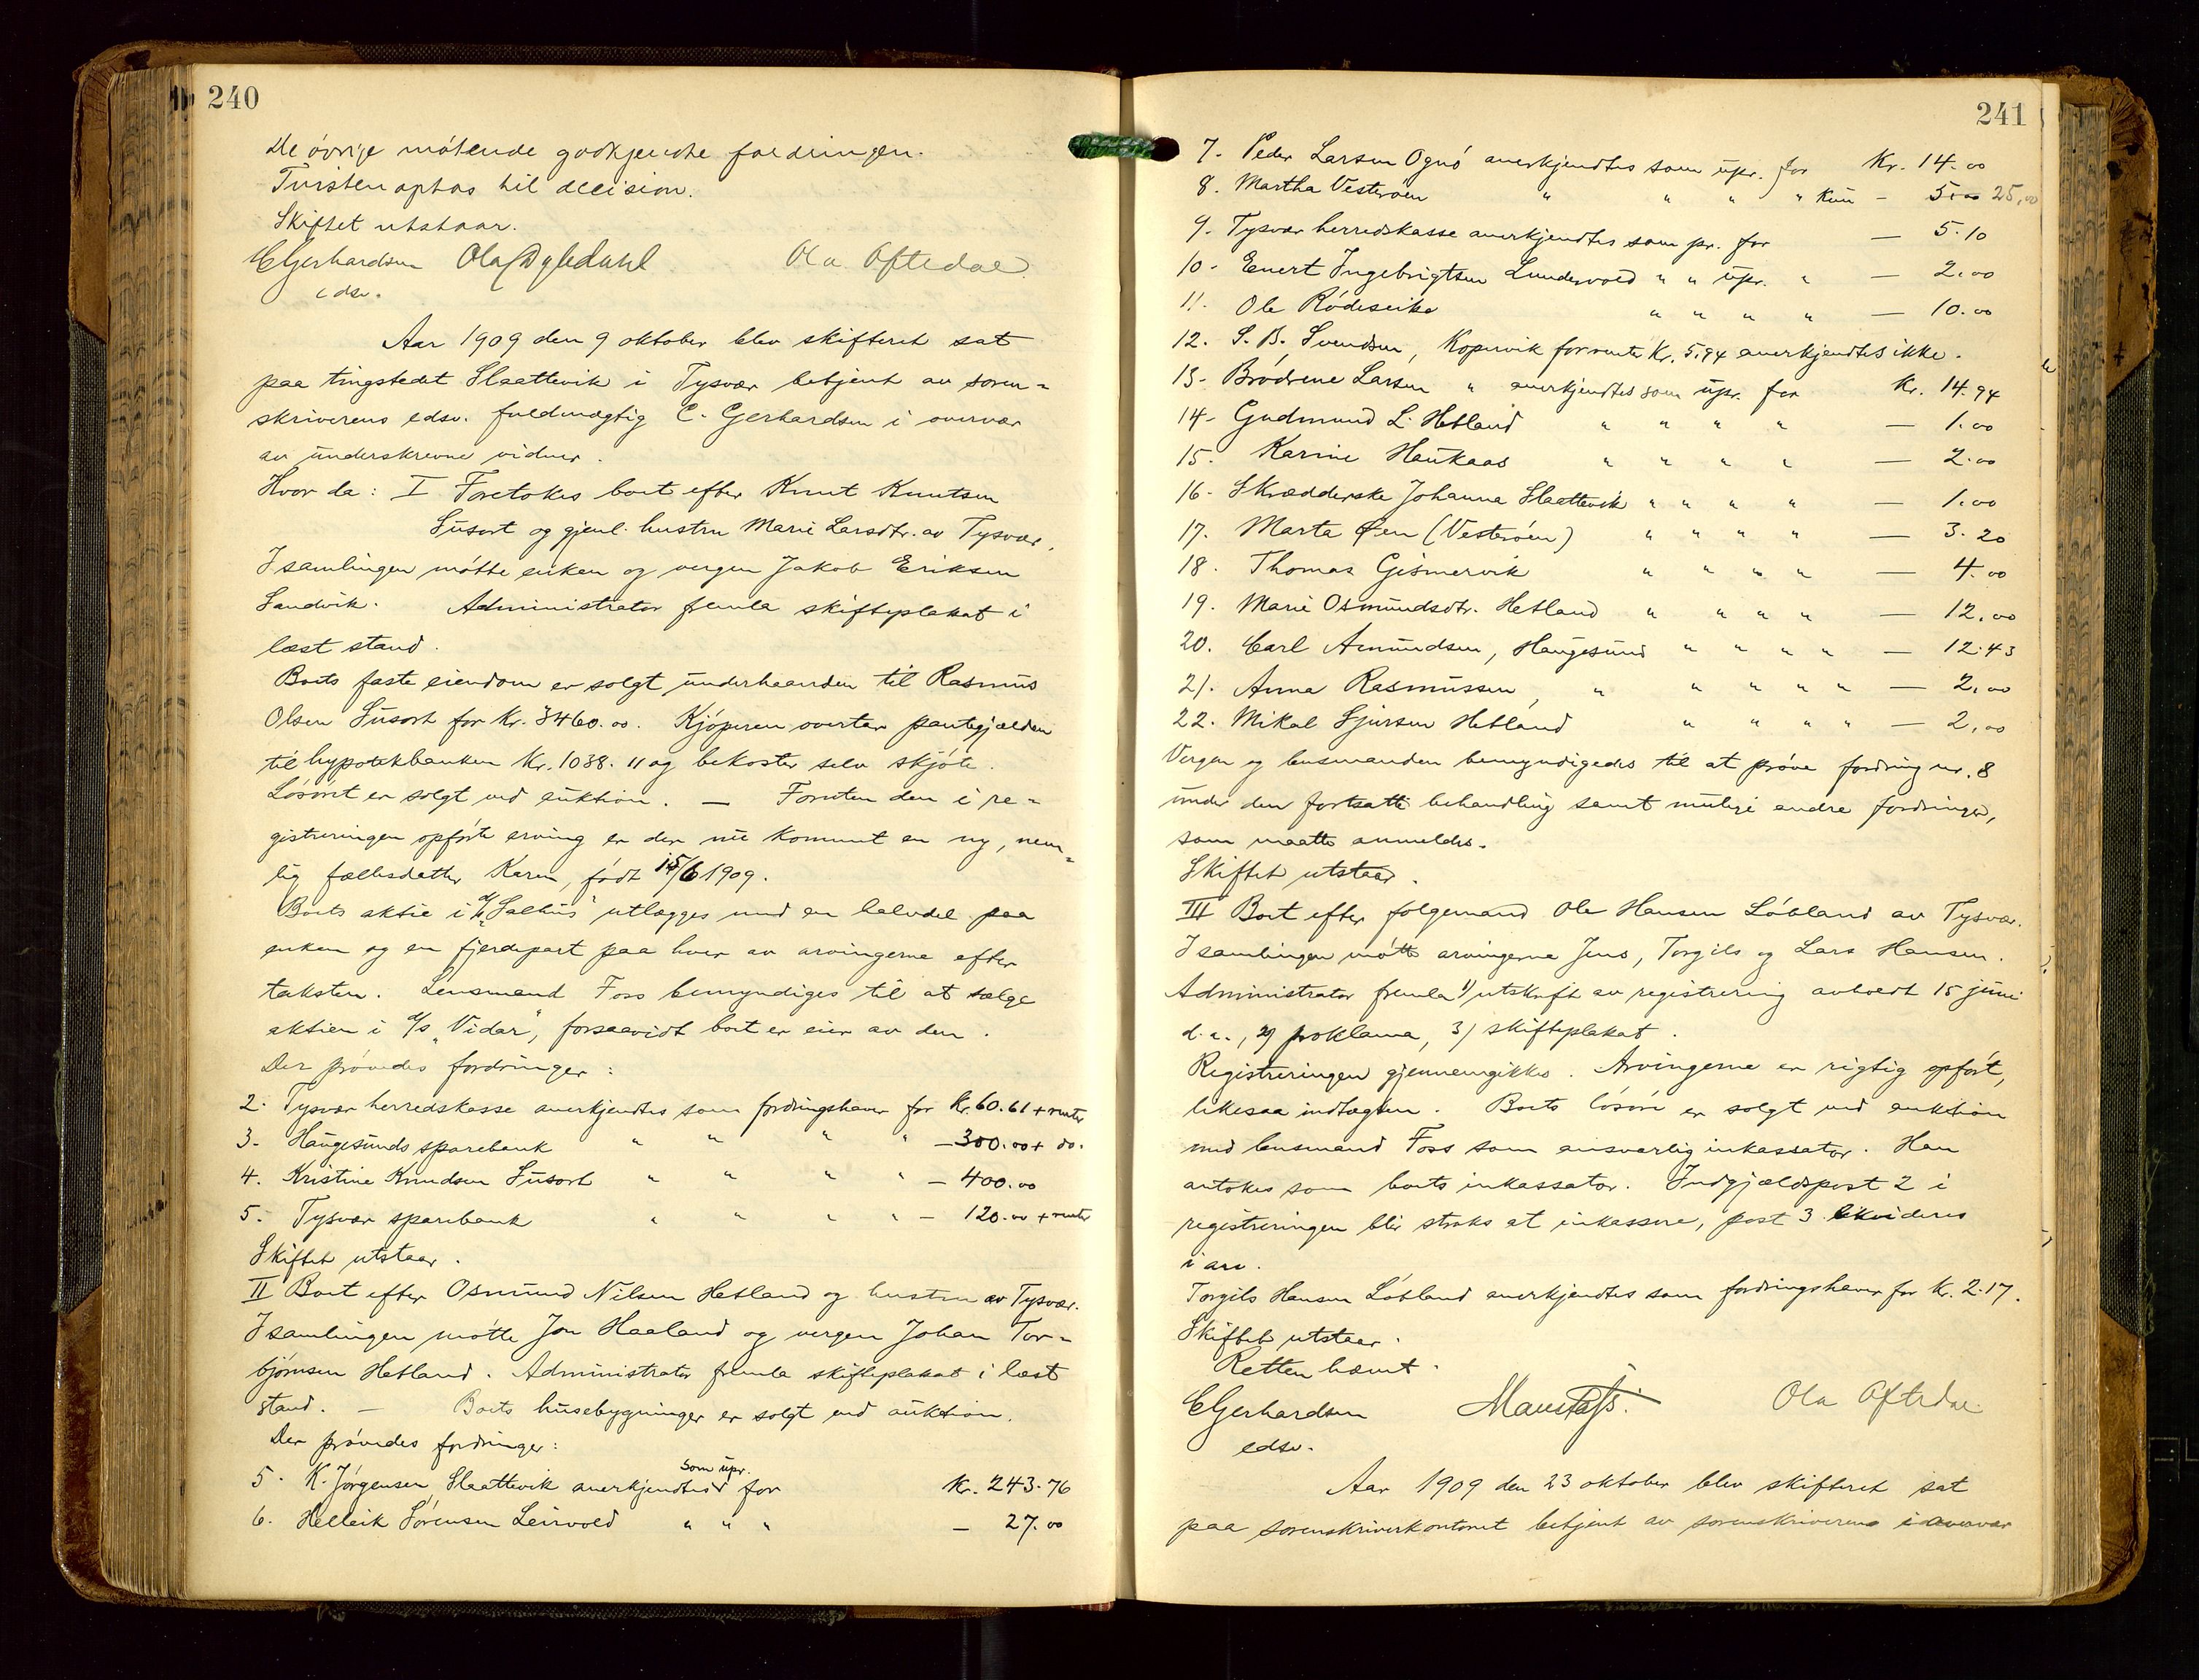 240
De øvrige møtende godkjendte fordringen.
Tvisten optas til decision.
Skiftet utstaar.
CGerhardsen Ola Ola Oftedal
edsv.
Aar 1909 den 9 oktober blev skifteret sat
paa tingstedet Slaattevik i Tysvær betjent av soren-
skriverens edsv. fuldmægtig C. Gerhardsen i overvær
av underskrevne vidner.
Hvor da: I Foretokes boet efter Knut Knutsen
Susort og gjenl. hustru Marie Larsdtr. av Tysvær.
I samlingen møtte enken og vergen Jakob Eriksen
Sandvik. Administrator fremla skifteplakat i
læst stand.
Boets faste eiendom er solgt underhaanden til Rasmus
Olsen Susort for Kr. 3460.00. Kjøperen overtar pantegjælden
til hypotekbanken Kr. 1038.11 og bekoster selv skjøte.
Løsøret er solgt ved auktion. — Foruten den i re-
gistreringen opførte arving er der nu kommet en ny, nem-
lig fællesdatter Karen, født 15/6 1909.
Boets aktie i a/s "Salhus" utlægges med en halvdel paa
enken og en fjerdepart paa hver av arvingerne efter
taksten. Lensmand Foss bemyndiges til at sælge
aktien i a/s "Vidar", forsaavidt boet er eier av den.
Der prøvedes fordringer:
2. Tysvær herredskasse anerkjendtes som fordringshaver for Kr. 60.61 + renter
3. Haugesunds sparebank " " " " — 300.00 + do.
4. Kristine Knudsen Susort " " " " — 400.00
5. Tysvær sparebank " " " " — 120.00 + renter
Skiftet utstaar.
II Boet efter Osmund Nilsen Hetland og hustru av Tysvær.
I samlingen møtte Jon Haaland og vergen Johan Tor-
bjørnsen Hetland. Administrator fremla skifteplakat i læst
stand. — Boets husebygninger er solgt ved auktion.
Der prøvedes fordringer:
5. K. Jørgensen, Slaattevik anerkjendtes som upr. for Kr. 243.76
6. Helleik Sørensen Leirvold " " " — 27.00
241
7. Peder Larsen Ognø anerkjendtes som upr. for Kr. 14.00
8. Martha Vesterøen " " " " kun — 5.00 25,00
9. Tysvær herredskasse anerkjendtes som pr. for — 5.10
10. Enert Ingebrigtsen Lundervold " " upr. " — 2.00
11. Ole Rødeseike " " " " — 10.00
12. S. B. Svendsen, Kopervik for renter Kr. 5,94 anerkjendtes ikke.
13. Brødrene Larsen " anerkjendtes som upr. for Kr. 14.94
14. Gudmund L. Hetland " " " " — 1.00
15. Karine Haukaas " " " " — 2.00
16. Skrædderske Johanna Slaattevik " " " " — 1.00
17. Marta Øen (Vesterøen) " " " " — 3.20
18. Thomas Gismervik " " " " — 4.00
19. Marie Osmundsdtr. Hetland " " " " — 12.00
20. Carl Amundsen, Haugesund " " " " — 12.43
21. Anna Rasmussen, " " " " " — 2,00
22. Mikal Sjursen Hetland " " " " — 2,00
Vergen og lensmanden bemyndigedes til at prøve fordring nr. 8
under den fortsatte behandling samt mulige andre fordringer,
som maatte anmeldes.
Skiftet utstaar.
III Boet efter følgemand Ole Hansen Løbland av Tysvær.
I samlingen møtte arvingerne Jens, Torgils og Lars Hansen.
Administrator fremla 1) utskrift av registrering avholdt 15 juni
d. a., 2) proklama, 3) skifteplakat.
Registreringen gjennemgikkes. Arvingerne er rigtig opført,
likesaa indtægten. Boets løsøre er solgt ved auktion
med lensmand Foss som ansvarlig inkassator. Han
antokes som boets inkassator. Indgjældspost 2 i
registreringen blir straks at inkassere, post 3 likvideres
i arv.
Torgils Hansen Løbland anerkjendtes som fordringshaver for Kr. 2.17.
Skiftet utstaar.
Retten hævet.
CGerhardsen Ola Oftedal
edsv.
Aar 1909 den 23 oktober blev skifteret sat
paa sorenskriverkontoret betjent av sorenskriverens i overvær